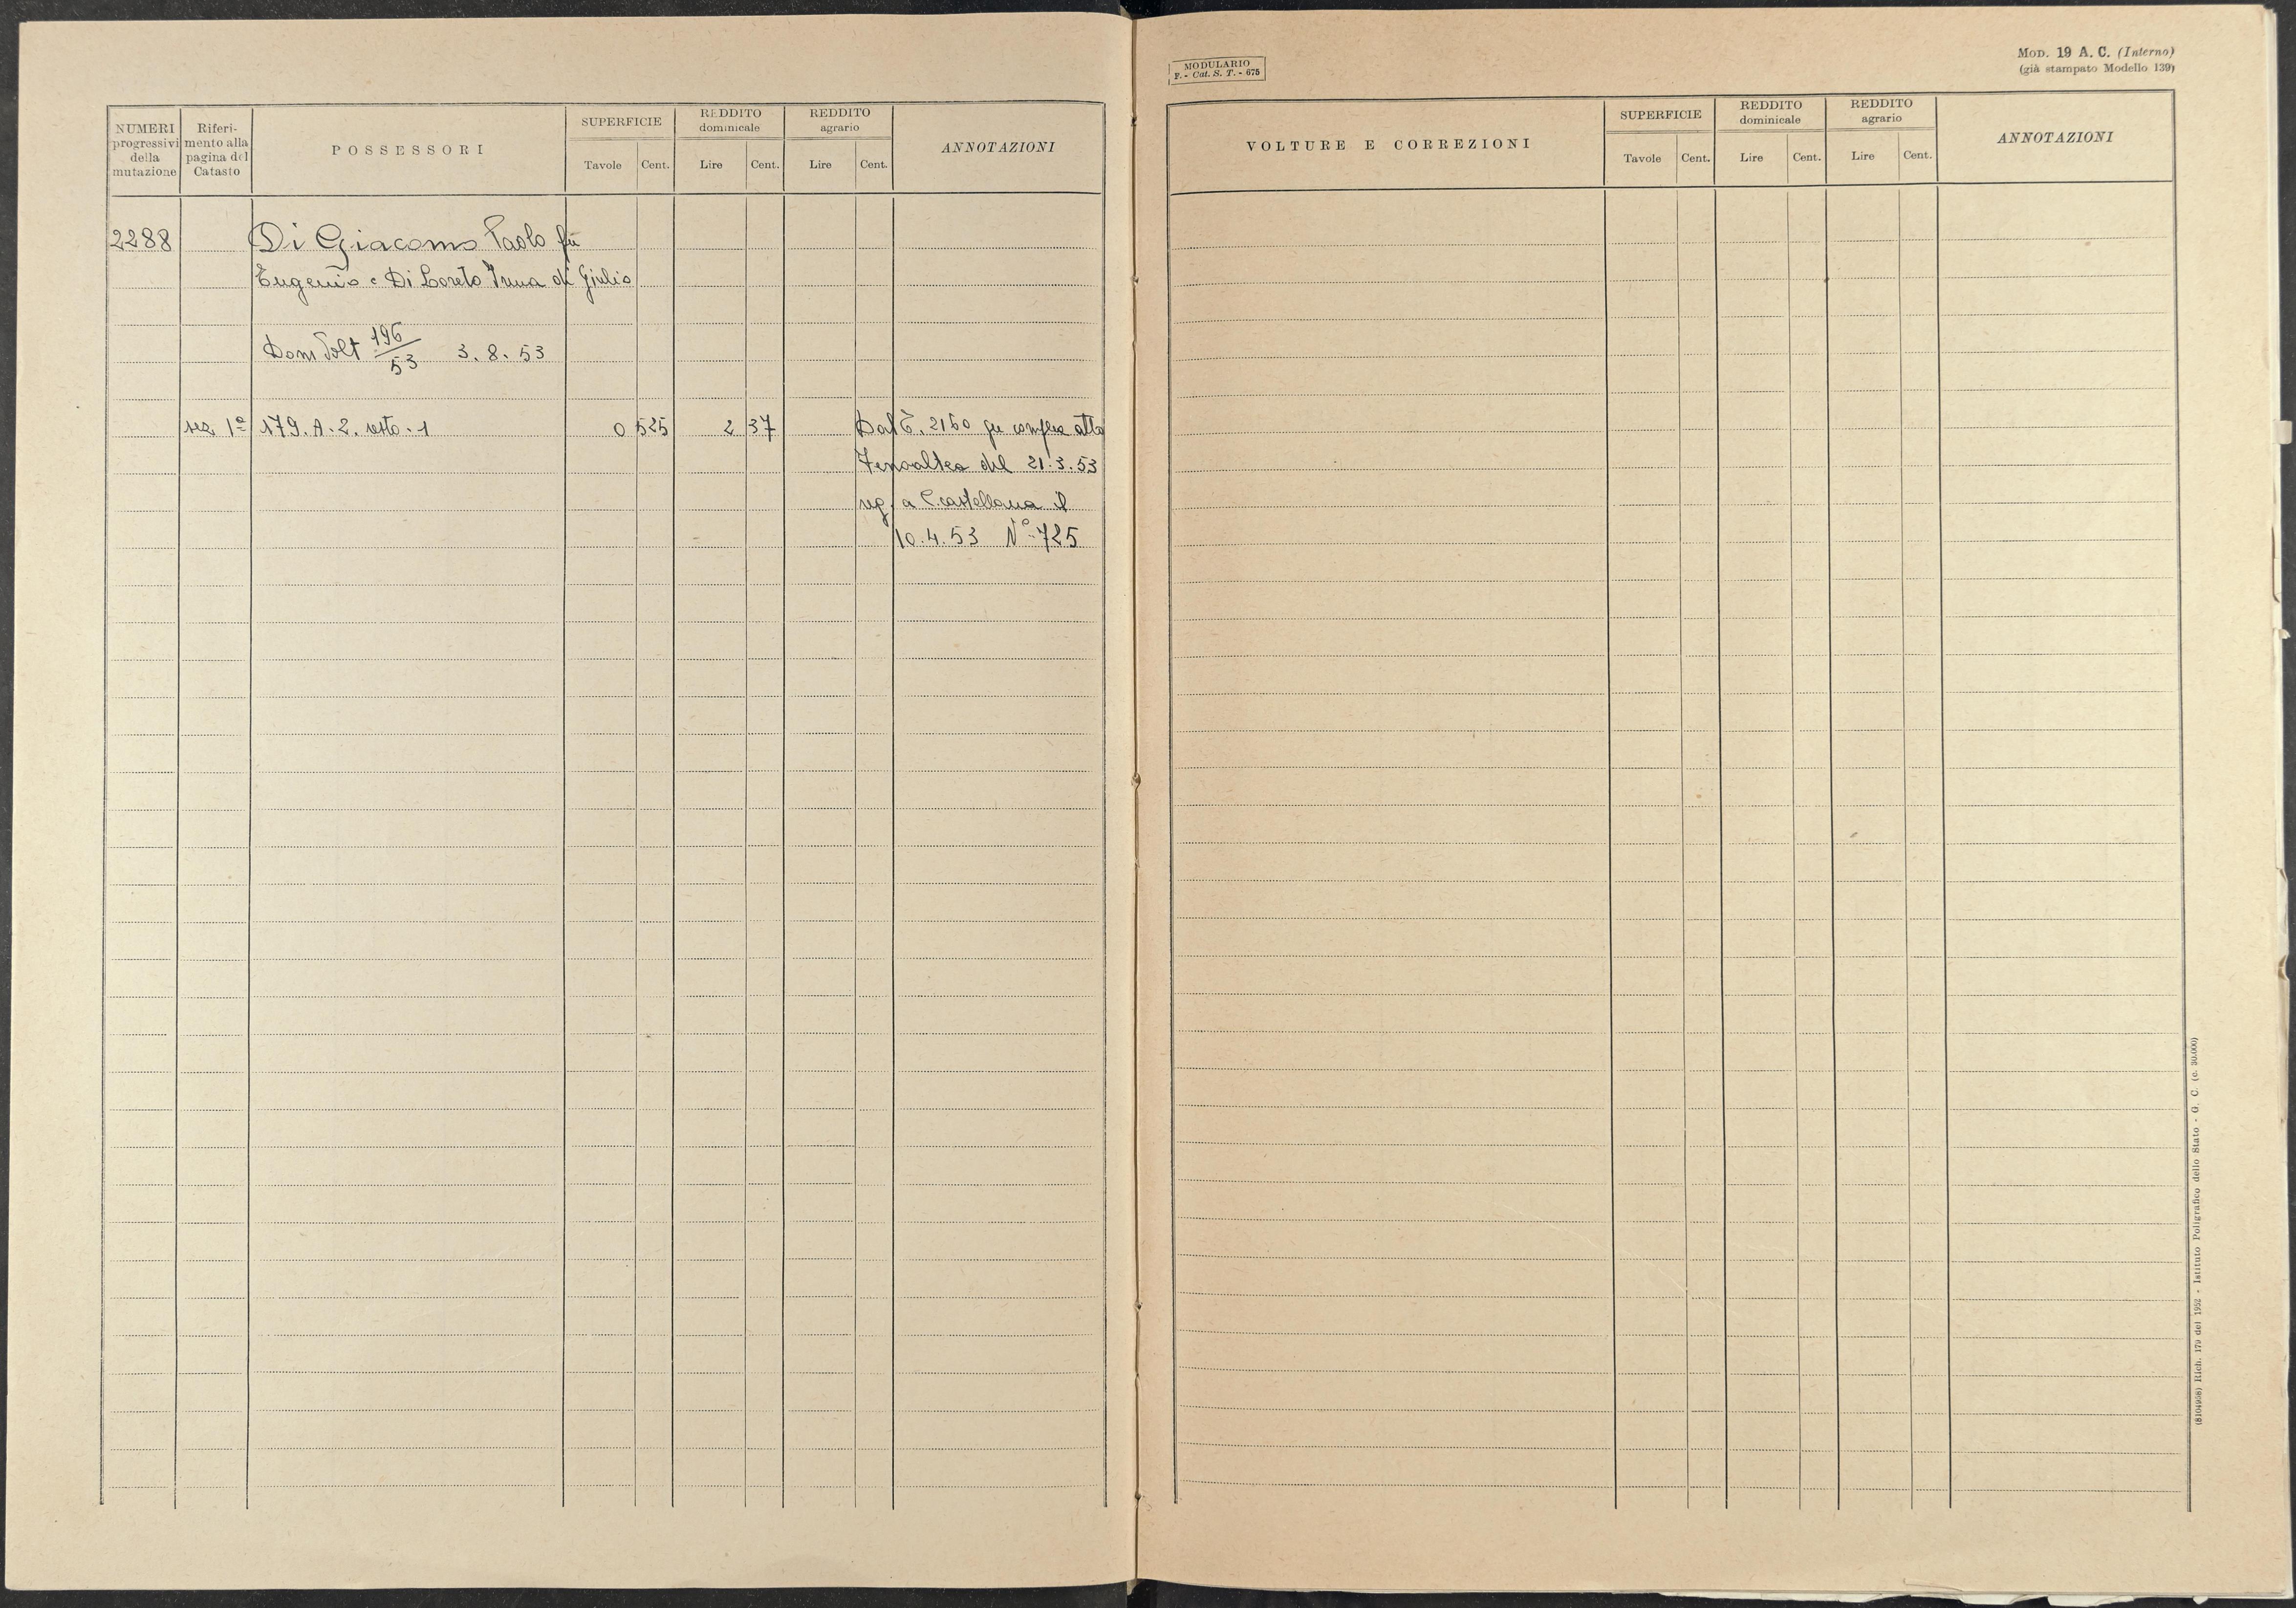 NUMERI
progressivi
della
mutazione
Riferi-
mento alla
pagina del
Catasto
POSSESSORI
SUPERFICIE
Tavole Cent.
REDDITO
dominicale
Lire Cent.
REDDITO
agrario
Lire Cent.
ANNOTAZIONI
2288 Di Giacomo Paolo fu
Eugenio e Di Loreto Anna di Giulio
Dom Volt 196/53 3.8.53
sez 1ª 179.A.2. resto.1 0 525 2 37 Dal 2160 per compra atto
del 21.3.53
reg. a Castellana il
10.4.53 N° 725
MODULARIO
F. - Cat. S. T. - 675
MOD. 19 A. C. (Interno)
(già stampato Modello 139)
VOLTURE E CORREZIONI
SUPERFICIE
Tavole Cent.
REDDITO
dominicale
Lire Cent.
REDDITO
agrario
Lire Cent.
ANNOTAZIONI
(8104958) Rich. 179 del 1952 - Istituto Poligrafico dello Stato - G. C. (c. 30.000)